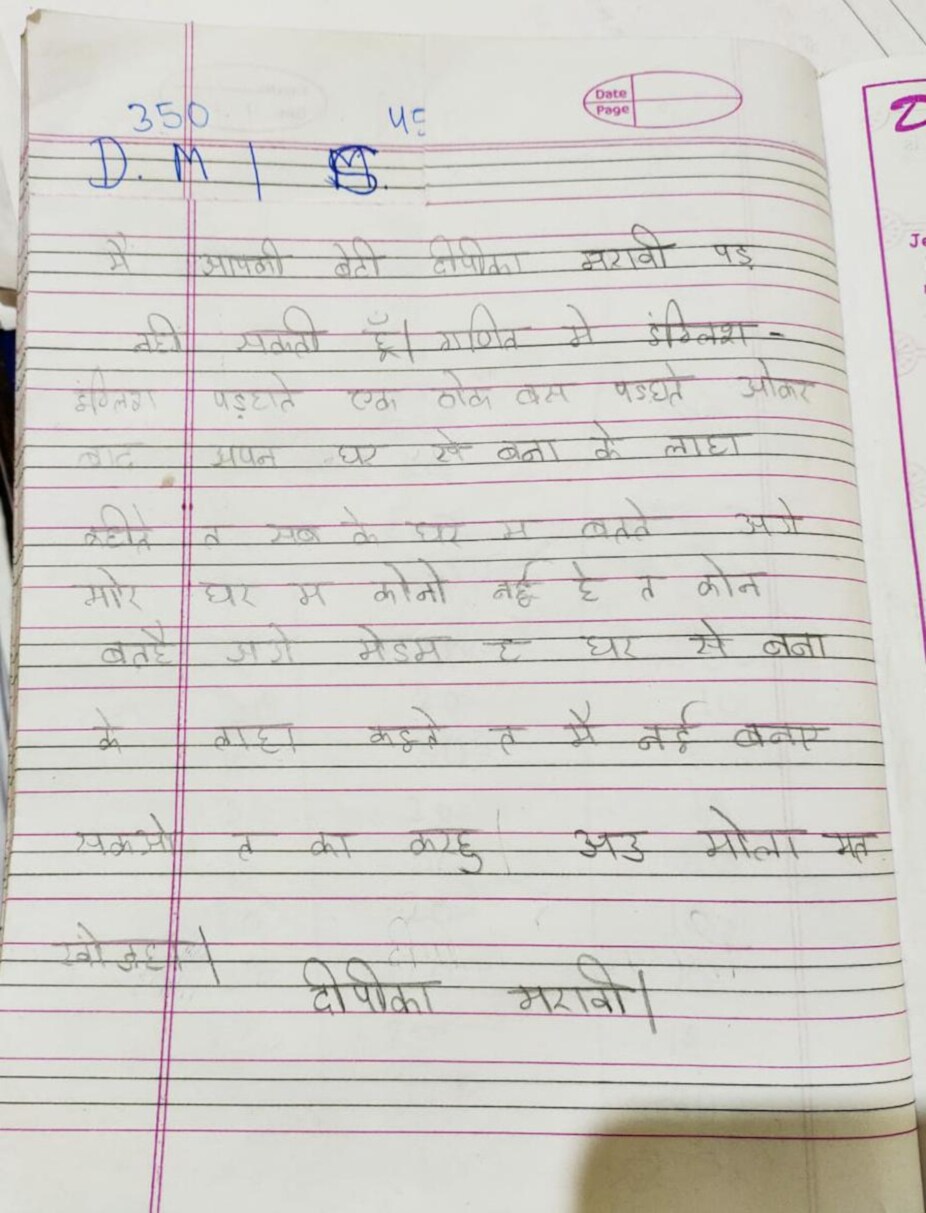 350 45
Date
Page
D. M | S.
मै आपकी बेटी दीपीका मरावी पड़
नही सकती हूँ| गणित मे इंग्लिश -
इंग्लिश पड़हाते एक ठोक बस पडघते ओकर
बाद अपन घर से बना के लाहा
कहीते त सब के घर म बतते अगे
मोरे घर म कोनो नई हे त कोन
बतहै अगे मेडम ह घर से बना
के लाहा कइते त मै नई बनाए
सकओ त का करहु| अउ मोला मत
खोजहा|
दीपीका मरावी|